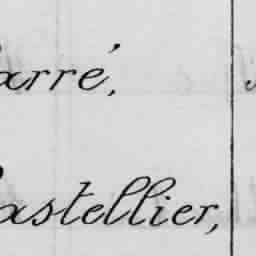 arré,
astellier,